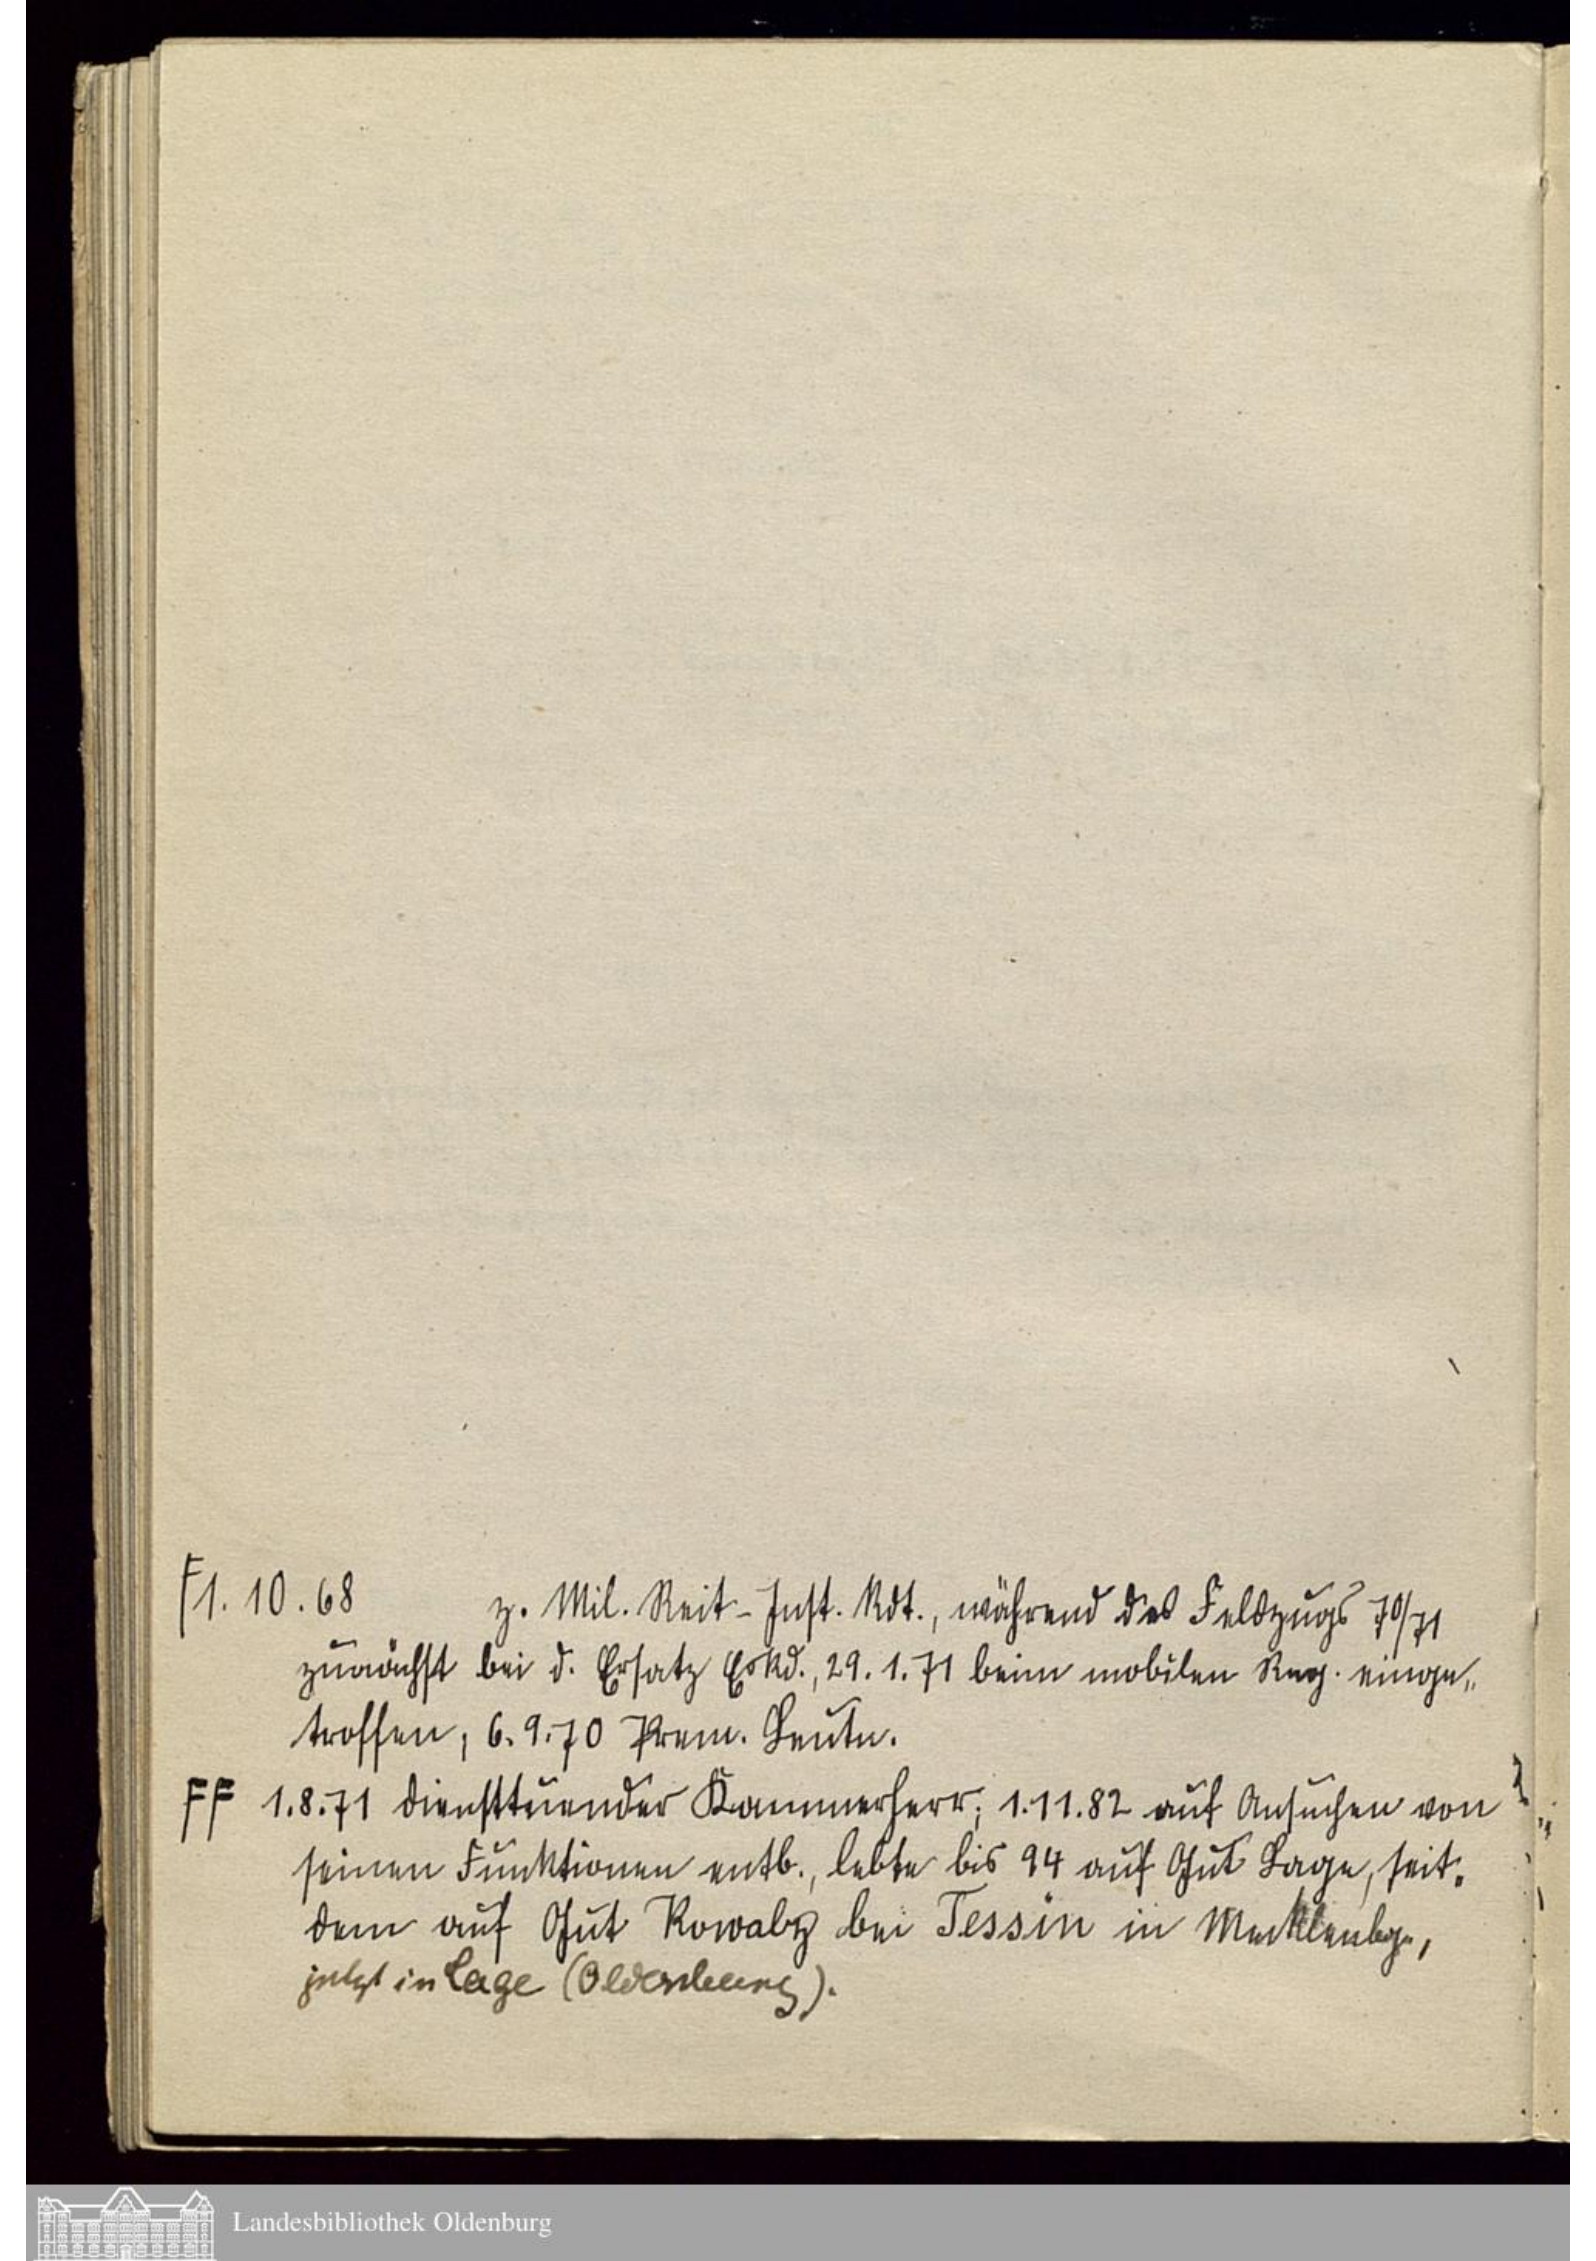 F 1. 10. 68 z. Mil. Reit-Inst. kdt., während des Feldzugs 70/71
zunächst bei d. Ersatz Eskd., 29. 1. 71 beim mobilen Reg. einge„
troffen; 6. 9. 70 Prem. Leutn.
FF 1. 8. 71 diensttuender Kammerherr; 1. 11. 82 auf Ansuchen von
seinen Funktionen entb., lebte bis 94 auf Gut Lage, seit„
dem auf Gut Kowalz bei Tessin in Mecklenbg.,
jetzt in Lage (Oldenburg).
Landesbibliothek Oldenburg